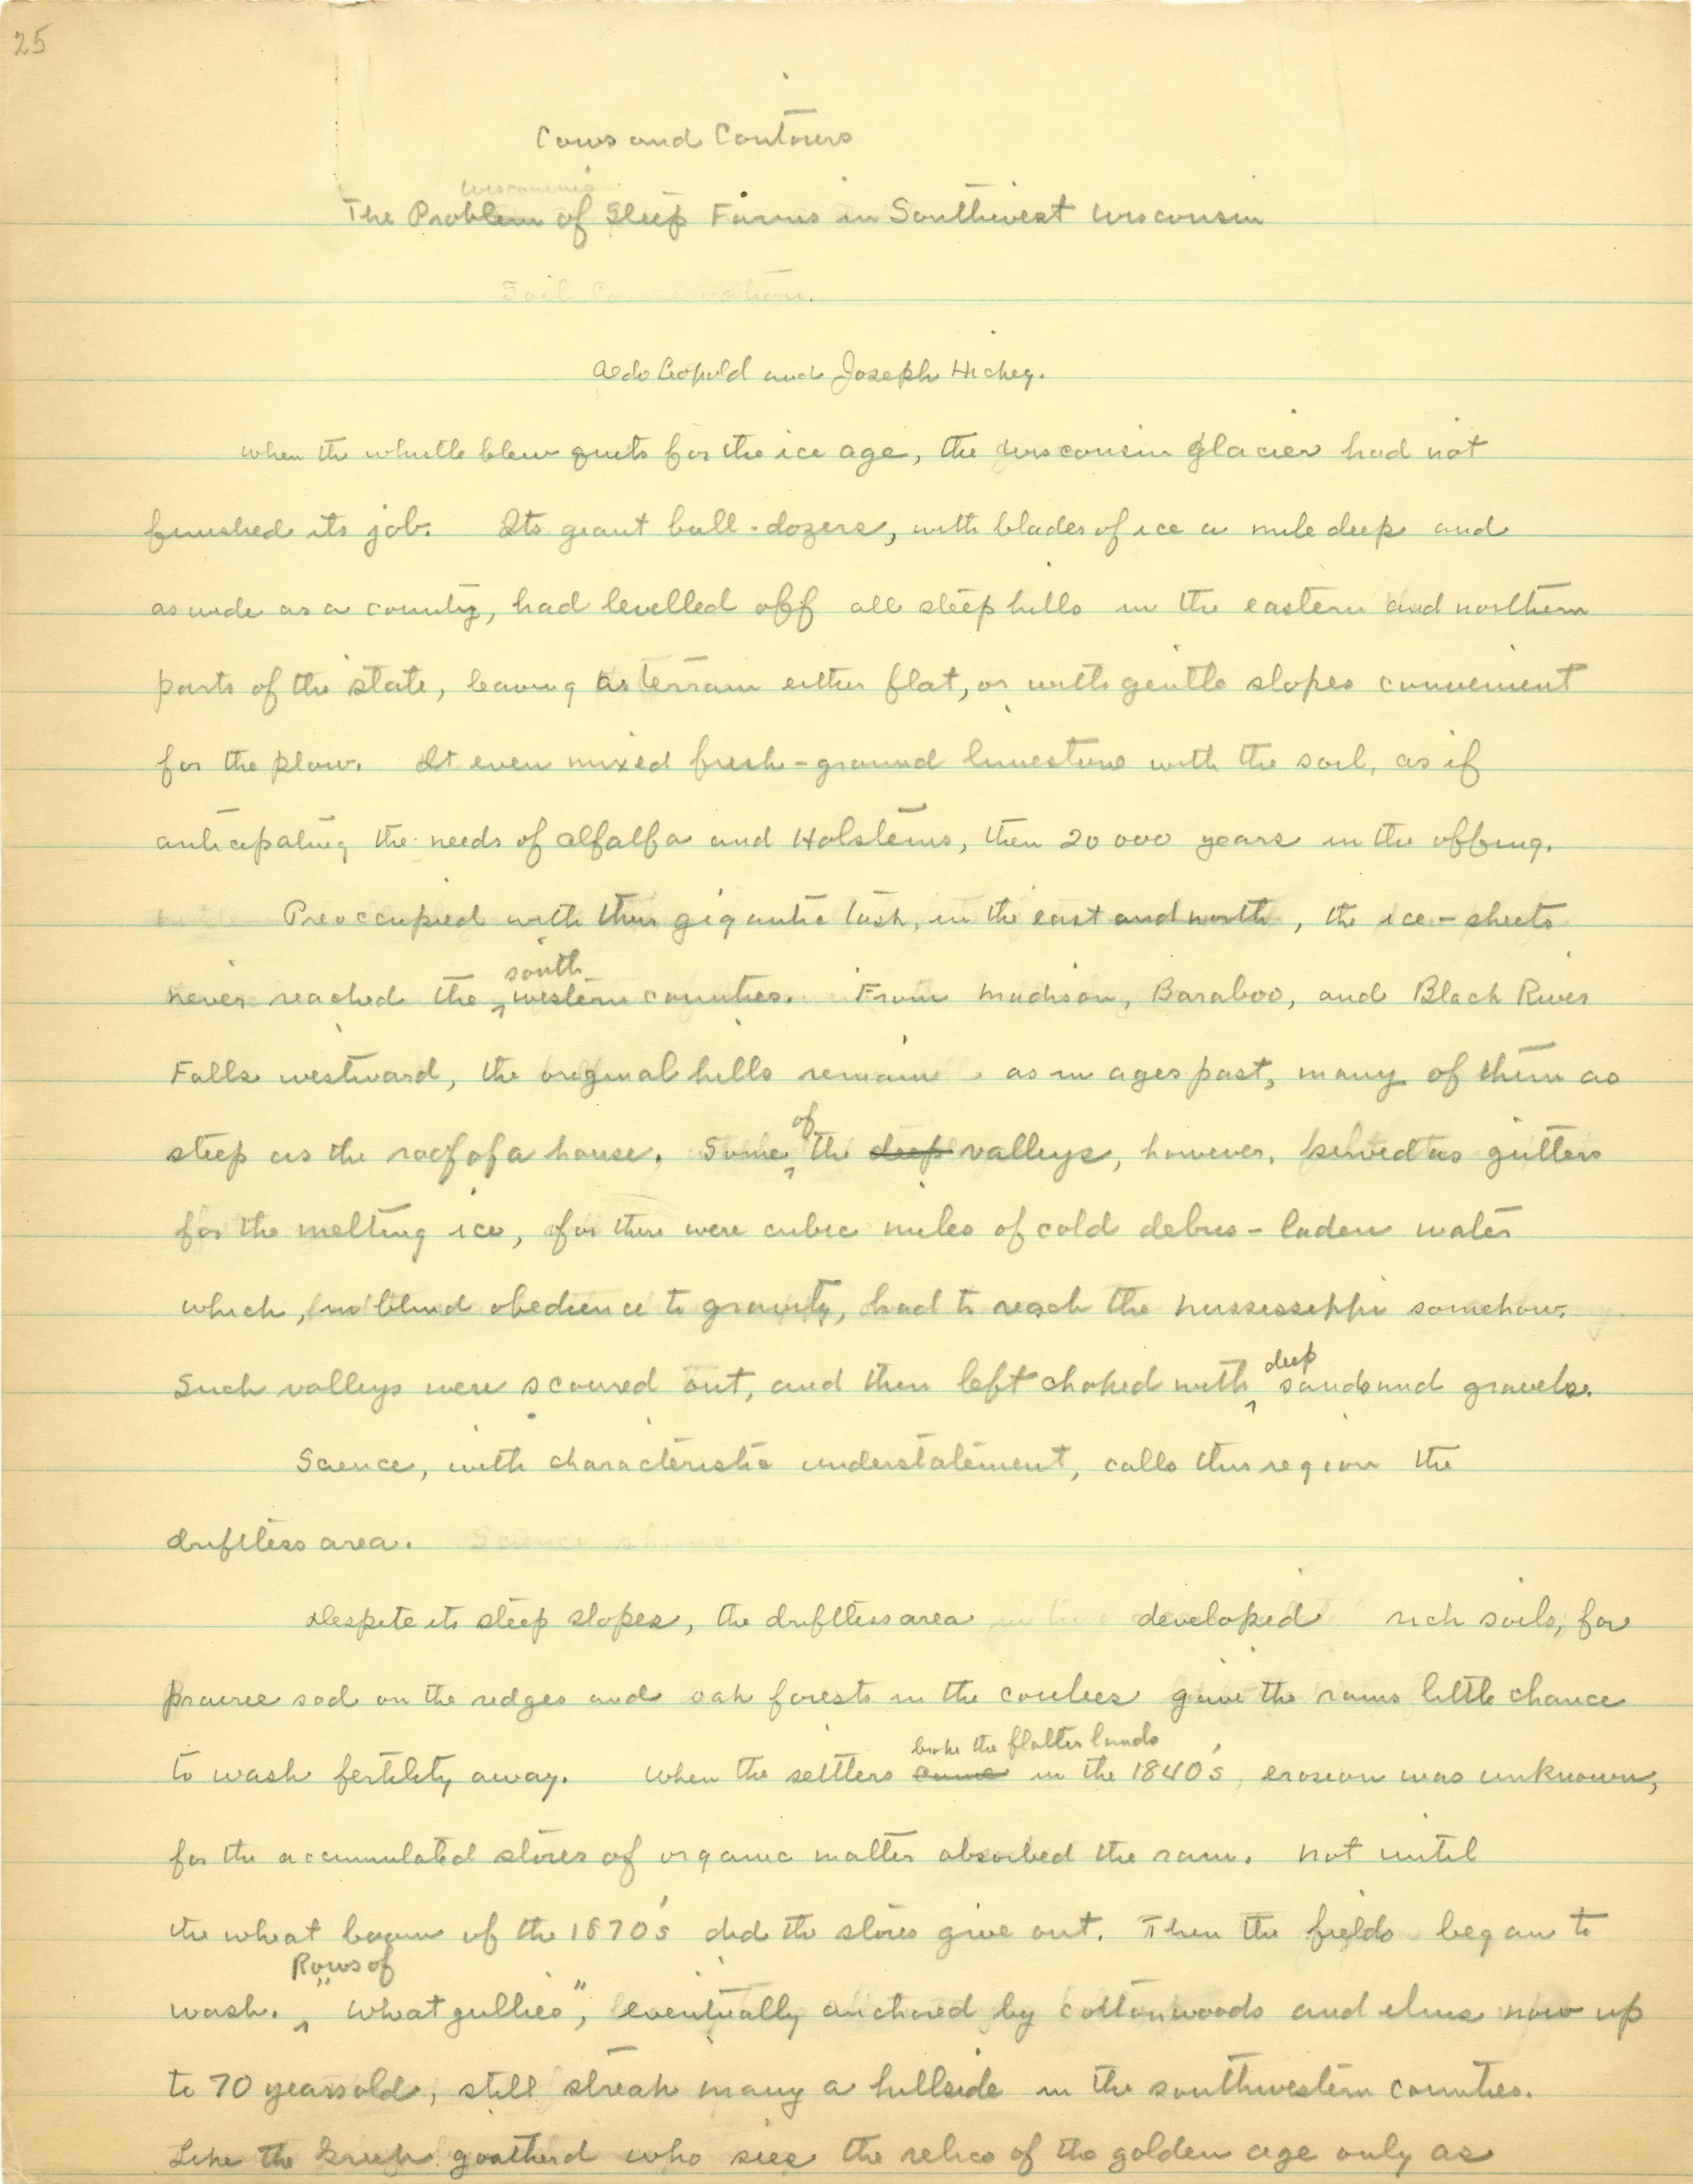 25
Cows and Contours
Wisconsin's
The Problem of Steep Farms in Southwest Wisconsin
Soil Conservation.
Aldo Leopold and Joseph Hickey.
When the whistle blew quits for the ice age, the Wisconsin glacier had not
finished its job. Its giant bull-dozers, with blades of ice a mile deep and
as wide as a county, had levelled off all steep hills in the eastern and northern
parts of the state, leaving as terrain either flat, or with gentle slopes convenient
for the plow. It even mixed fresh-ground limestone with the soil, as if
anticipating the needs of alfalfa and Holsteins, then 20 000 years in the offing.
Preoccupied with their gigantic task, in the east and north, the ice-sheets
south
never reached the ^ western counties. From Madison, Baraboo, and Black River
Falls westward, the original hills remain as in ages past, many of them as
of
steep as the roof of a house. Some ^ the deep valleys, however, served as gutters
for the melting ice, for there were cubic miles of cold debris-laden water
which, in blind obedience to gravity, had to reach the Mississippi somehow.
deep
Such valleys were scoured out, and then left choked with ^ sands and gravels.
Science, with characteristic understatement, calls this region the
driftless area. Science
Despite its steep slopes, the driftless area developed rich soils, for
prairie sod on the ridges and oak forests in the coulees gave the rains little chance
broke the flatter lands
to wash fertility away. When the settlers came in the 1840's, erosion was unknown,
for the accumulated stores of organic matter absorbed the rain. Not until
the wheat boom of the 1870's did the stores give out. Then the fields began to
Rows of
wash. ^ "Wheat gullies", eventually anchored by cottonwoods and elms now up
to 70 years old, still streak many a hillside in the southwestern counties.
Like the Greek goatherd who sees the relics of the golden age only as